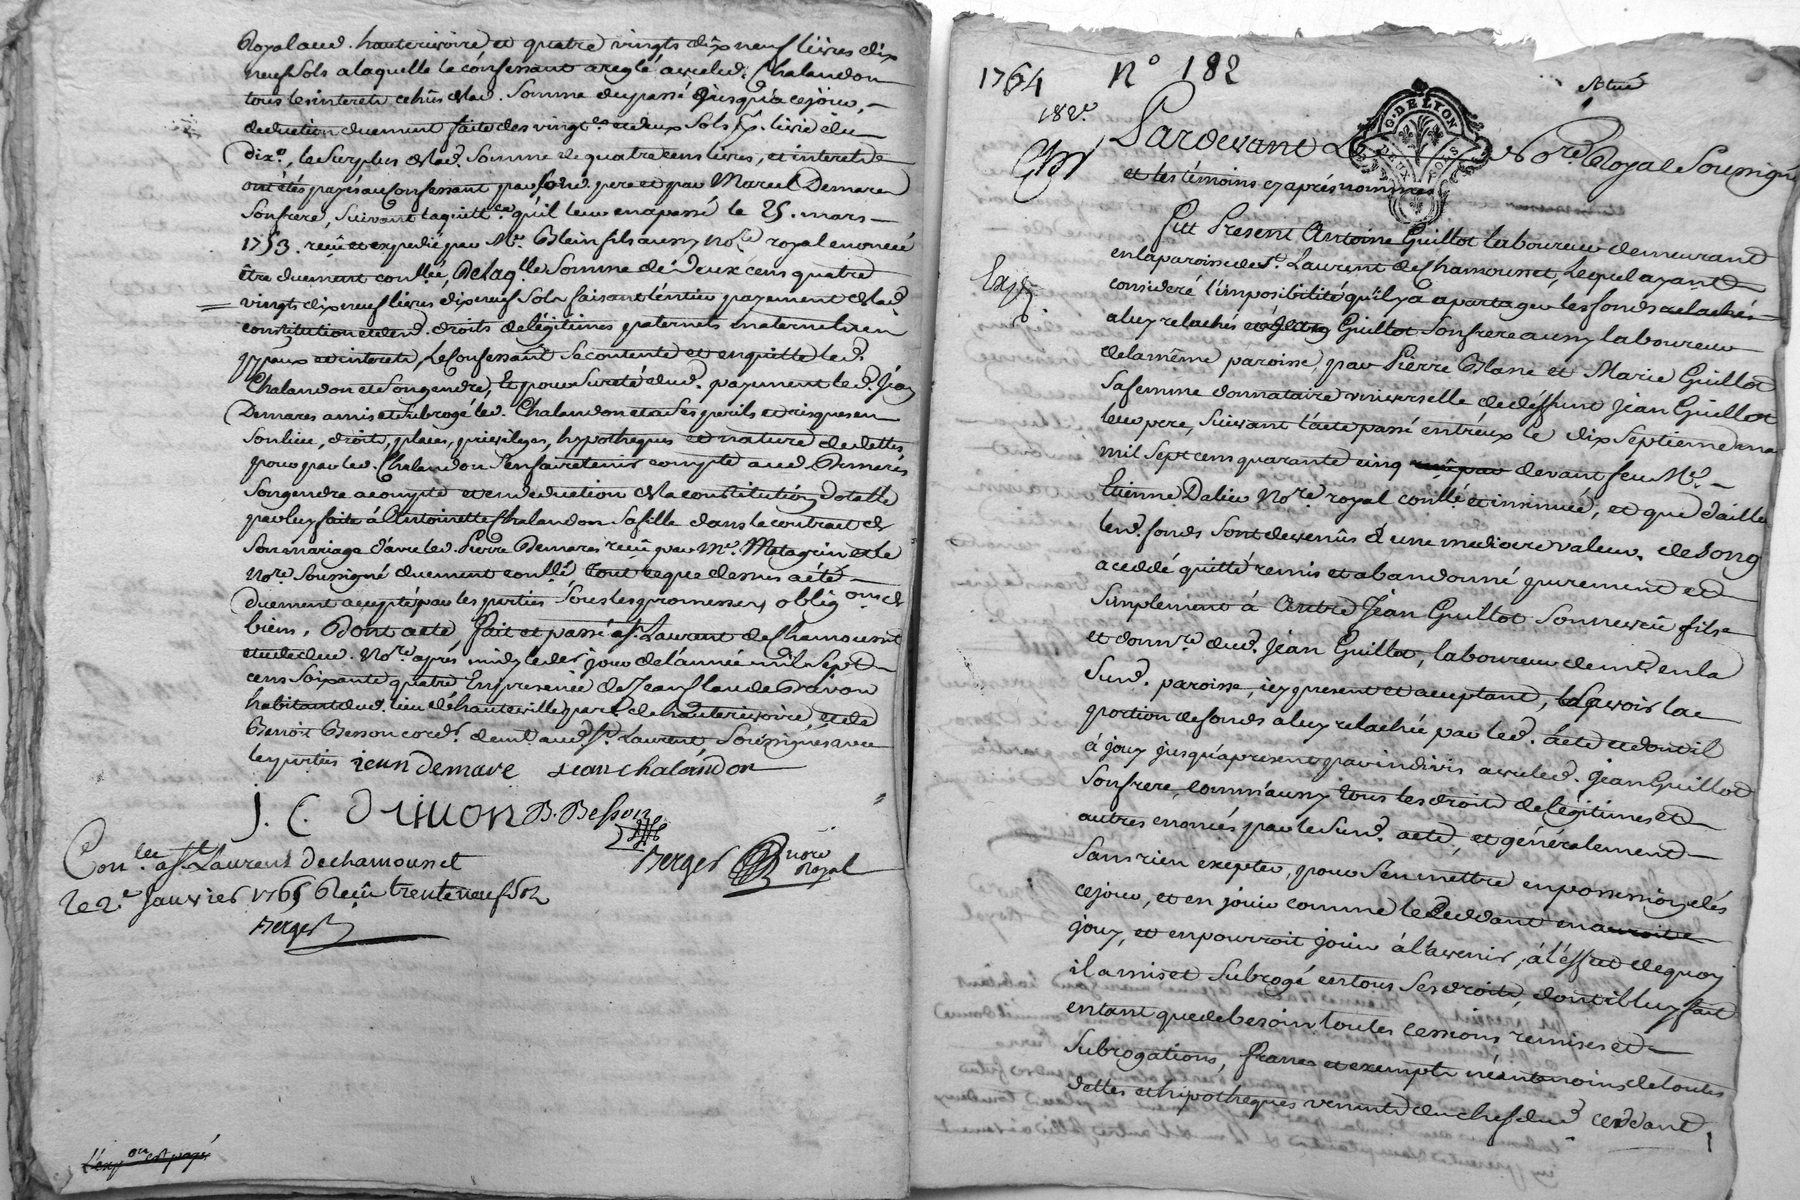 Royal aud. hauterivoire et quatre vingts dix neuf livres dix
neuf Sols a laquelle le confessant a reglé avec led. Chalandon
tous les interets echûs de lad. Somme du passé jusqu'a ce jour,
deduction duement faite des vingt et deux Sols p. livre du
dix.e, le Surplus de lad. Somme de quatre cens livres, et interets
ont étés payés au Confessant par fond. pere et par Marcel Demare
Son frere, Suivant la quitt.ce qu'il leur en a passé le 25. mars
1753. reçû et expedié par M.e Blein fils aussy No.re royal enoncé
être duement con.llée, De laq.lle Somme de Deux cens quatre
vingt dix neuf livres dix neuf Sols faisant l'entier payement de lad
constitution et desd. droits de légitimes paternels maternels en
ppaux et interets, Le Confessant Se contente et en quitte led.
Chalandon et Son gendre, Et pour Sureté dud. payement le d. Jean
Demares a mis et Subrogé led. Chalandon et a Ses perils et risques en
Son lieu, droits, places, privileges, hypotheques et nature de dettes
pour par led. Chalandon S'en faire tenir compte aud. Demares
Son gendre a compte et en deduction de la constitution dotalle
par luy faite à Antoinette Chalandon Sa fille dans le contract de
Son mariage d'avec led. Pierre Demares reçû par M.e Matagrin et le
No.re Soussigné duement con.llé Tout ce que dessus a été
Duement accepté par les parties Sous les promesses, oblig.ons et
biens, Dont acte, fait et passé a S.t Laurent de Chamousset
etude dud. No.re après midy le der jour de l'année mil Sept
cens Soixante quatre En presence de Jean Claude Drivon
habitant dud. lieu de hauteville par. de hauterivoire, et de
Benoit Besson cord.r demt. aud. S.t Laurent Soussignés avec
les parties jean demare jean chalandon
J. C. drivon B. Besson
Berger no.re Royal
Con.llé a S.t Laurent de chamousset
le 2.e Janvier 1765 Reçû trente neuf Sols
Berger
L'exp.on est payé
1764 N° 182
182.e
Actué
G. DE LYON
DEUX SOLS
Pardevant Le No.re Royal Soussigné
et les témoins cy après nommés
Fut Present Antoine Guillot laboureur demeurant
en la paroisse de S.t Laurent de Chamousset, Lequel ayant
consideré l'impossibilité qu'il y a a partager les fonds relachés
a luy relachés et à Jean Guillot Son frere aussy laboureur
de la même paroisse, par Pierre Blanc et Marie Guillot
Sa femme donnataire universelle de deffunt Jean Guillot
leur pere, Suivant l'acte passé entr'eux le dix Septieme ma
mil Sept cens quarante cinq reçû par devant feu M.e
Etienne Dalier No.re royal con.llé et insinué, et que d'aille
lesd. fonds Sont devenûs d'une mediocre valeur. de Song
a cedé quitté remis et abandonné purement et
Simplement à Autre Jean Guillot Son neveû fils
et donn.re dud. Jean Guillot, laboureur demt. en la
Susd. paroisse, icy present et acceptant, Sçavoir la
portion de fonds a luy relachée par led. acte et dont il
à jouy jusqu'a present par indivis avec led. Jean Guillot
Son frere, comm'aussy tous les droits de legitimes et
autres enoncés par le Susd. acte, et généralement
Sans rien excepter, pour S'en mettre en possession dès
ce jour, et en jouir comme le Ceddant en auroit
jouy, et en pourroit jouir à l'avenir, à l'éffet de quoy
il a mis et Subrogé en tous Ses droits, dont il luy fait
en tant que de besoin toutes cessions remises et
Subrogations, francs et exempts néantmoins de toutes
dettes et hipothèques venants du chef dud. ceddant,